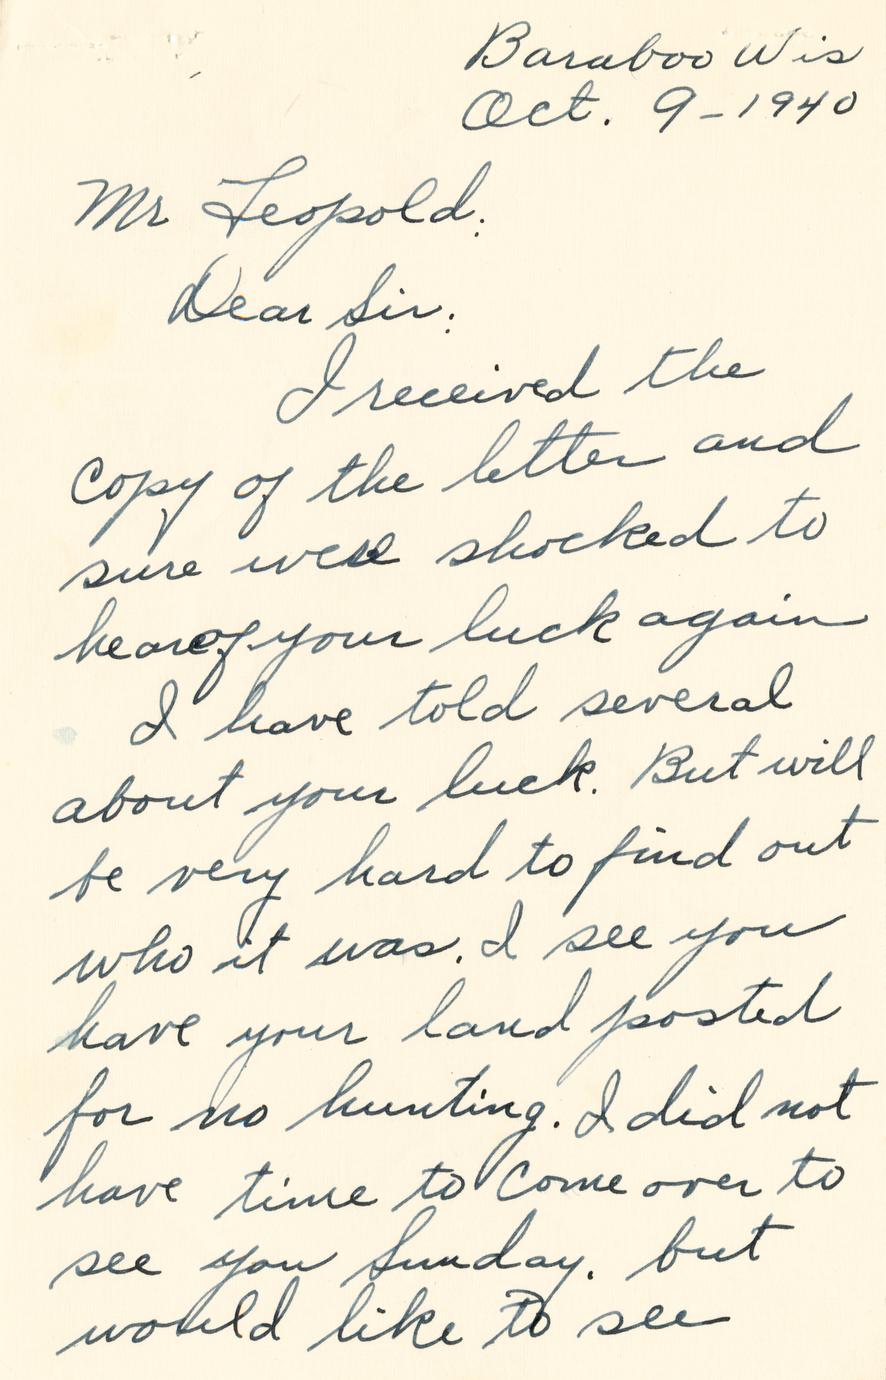 Baraboo Wis
Oct. 9 - 1940
Mr Leopold:
Dear Sir:
I received the
copy of the letter and
sure was shocked to
hear of your luck again
I have told several
about your luck. But will
be very hard to find out
who it was. I see you
have your land posted
for no hunting. I did not
have time to come over to
see you Sunday. but
would like to see